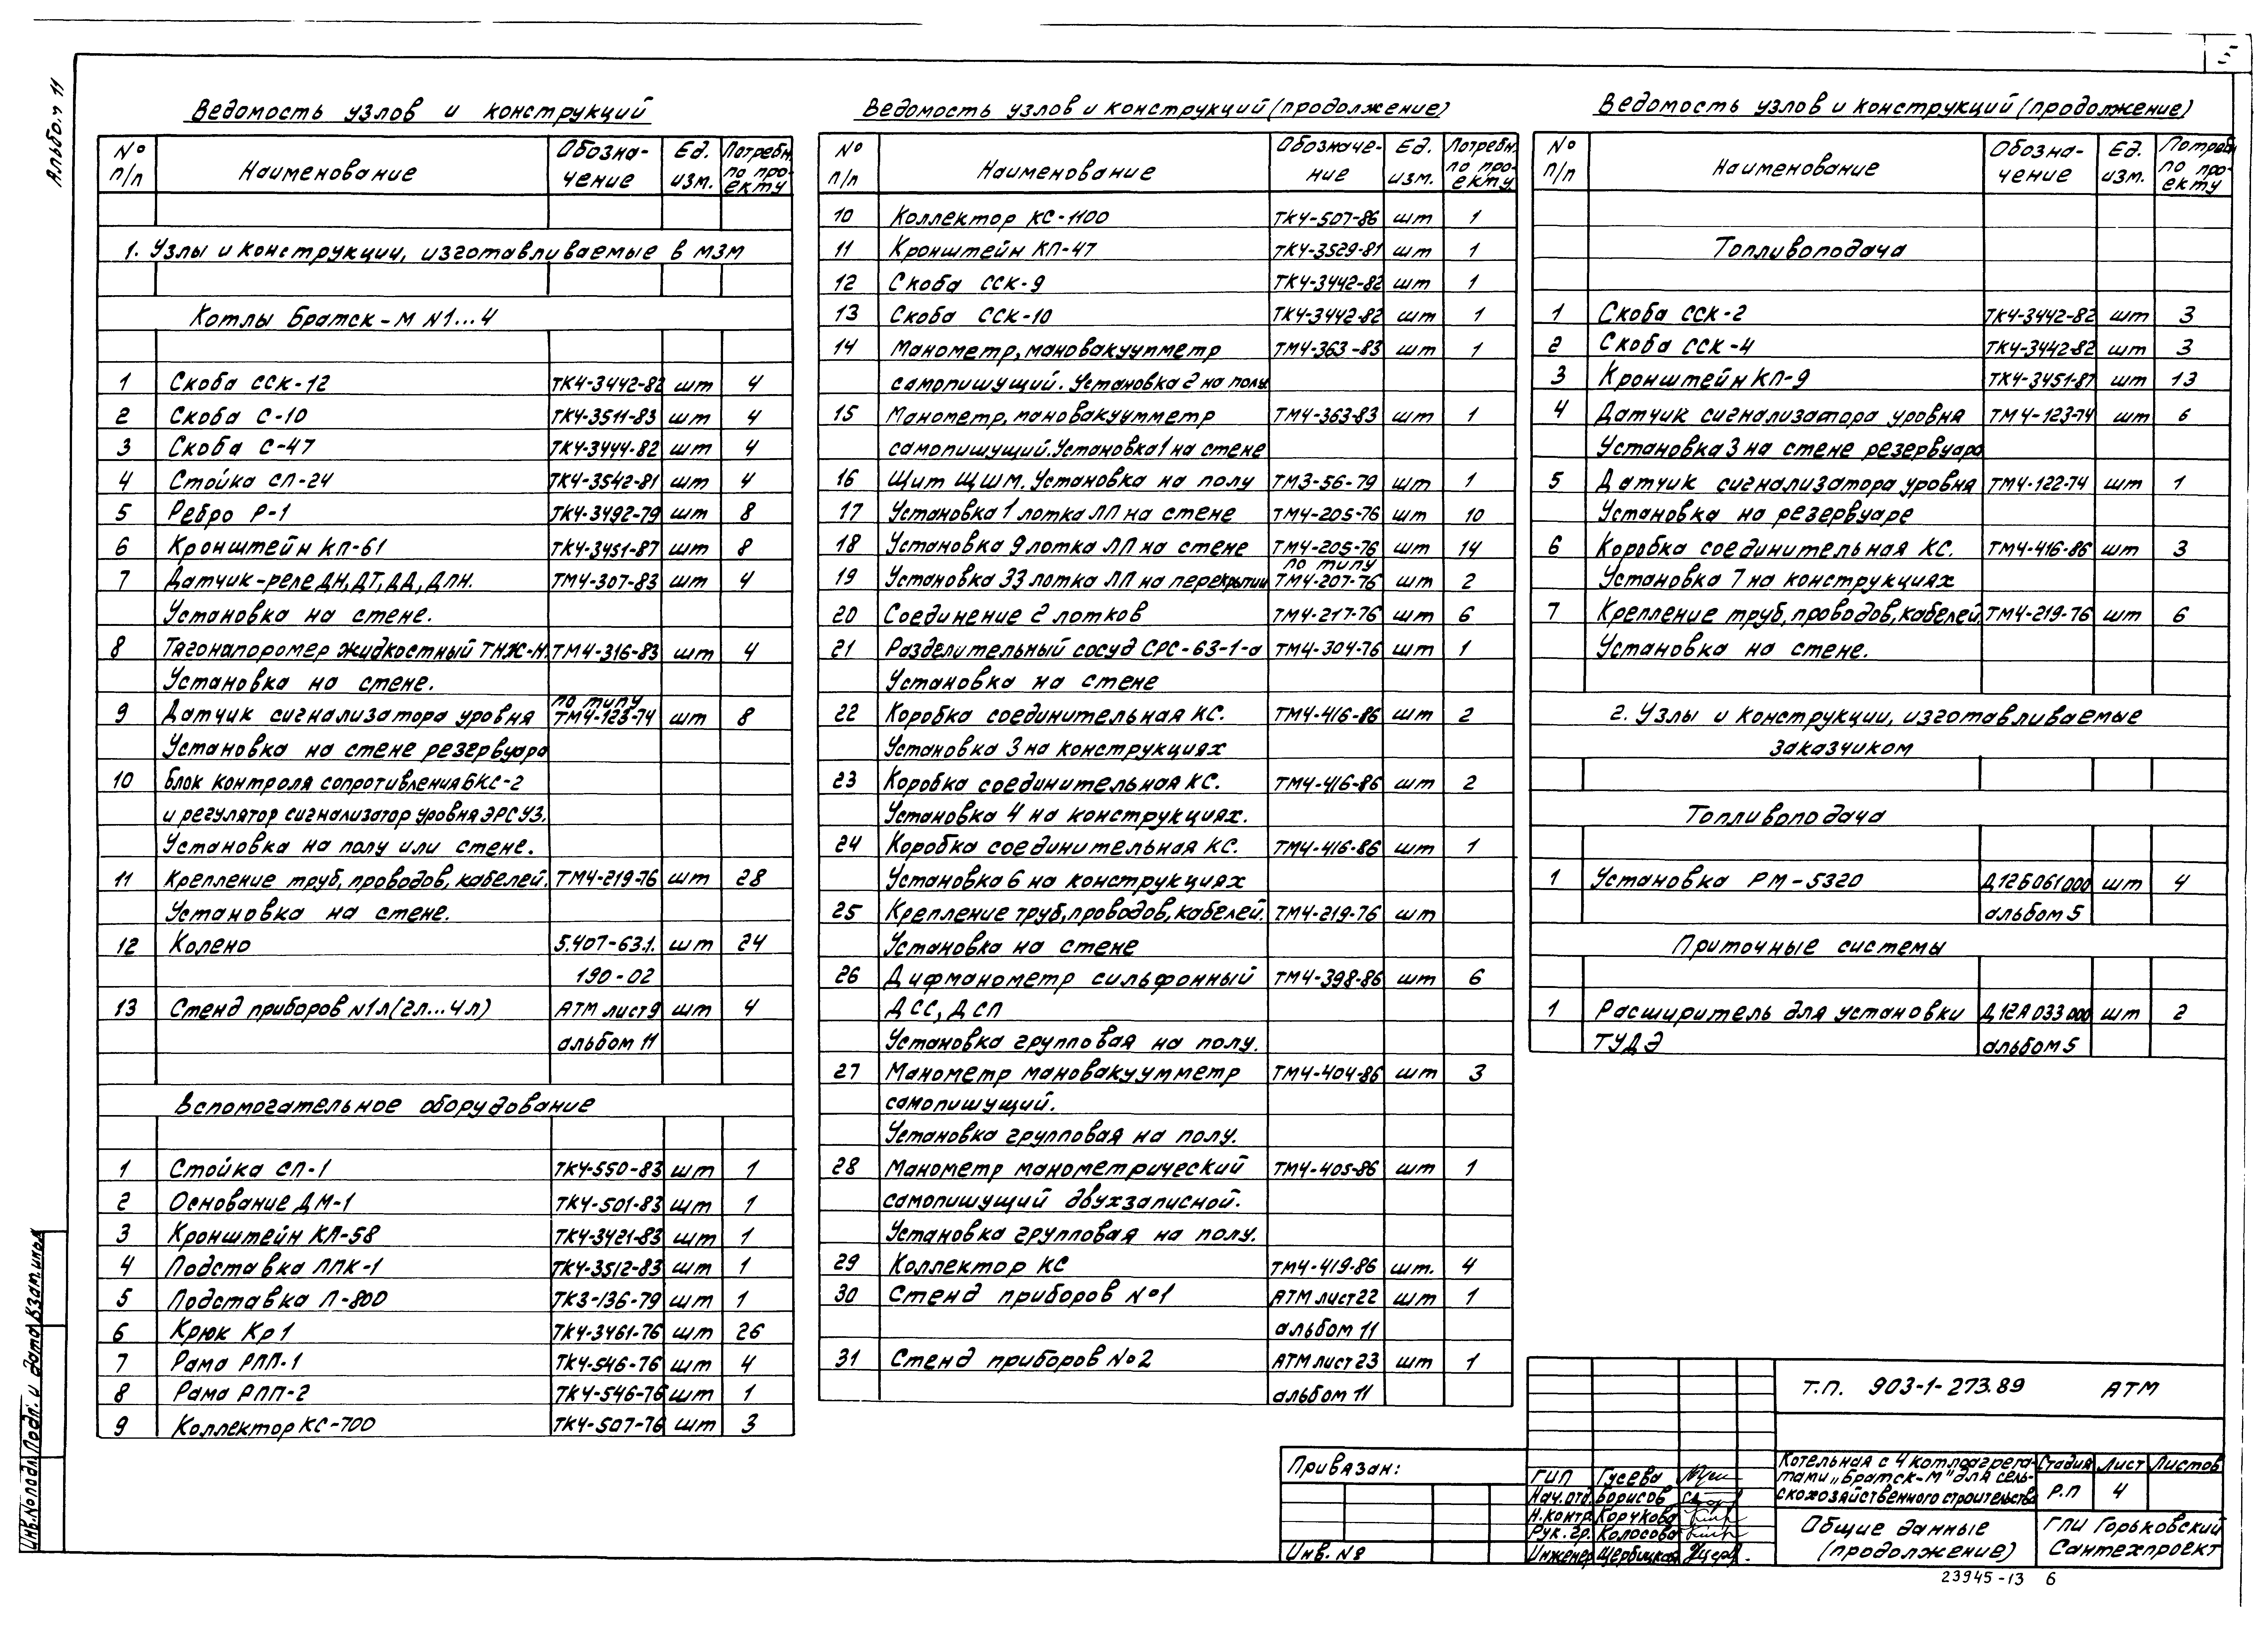 5
Альбом 11
Ведомость узлов и конструкций
№ п/п Наименование Обозна-чение Ед. изм. Потребн. по про-екту
1. Узлы и конструкции, изготавливаемые в МЗМ
Котлы Братск-М N1...4
1 Скоба ССК-12 ТК4-3442-82 шт 4
2 Скоба С-10 ТК4-3511-83 шт 4
3 Скоба С-47 ТК4-3444-82 шт 4
4 Стойка СП-24 ТК4-3542-81 шт 4
5 Ребро Р-1 ТК4-3492-79 шт 8
6 Кронштейн КП-61 ТК4-3451-87 шт 8
7 Датчик-реле ДН, ДТ, ДД, ДПН. ТМ4-307-83 шт 4
Установка на стене.
8 Тягонапоромер жидкостный ТНЖ-Н. ТМ4-316-83 шт 4
Установка на стене.
9 Датчик сигнализатора уровня по типу ТМ4-123-74 шт 8
Установка на стене резервуара
10 Блок контроля сопротивления БКС-2
и регулятор сигнализатор уровня ЭРСУЗ.
Установка на полу или стене.
11 Крепление труб, проводов, кабелей. ТМ4-219-76 шт 28
Установка на стене.
12 Колено 5.407-63.1. шт 24
190-02
13 Стенд приборов N1л(2л...4л) АТМ лист 9 шт 4
альбом 11
Вспомогательное оборудование
1 Стойка СП-1 ТК4-550-83 шт 1
2 Основание ДМ-1 ТК4-501-83 шт 1
3 Кронштейн КП-58 ТК4-3421-83 шт 1
4 Подставка ППК-1 ТК4-3512-83 шт 1
5 Подставка П-800 ТК3-136-79 шт 1
6 Крюк Кр1 ТК4-3461-76 шт 26
7 Рама РПП-1 ТК4-546-76 шт 4
8 Рама РПП-2 ТК4-546-76 шт 1
9 Коллектор КС-700 ТК4-507-76 шт 3
Ведомость узлов и конструкций (продолжение)
№ п/п Наименование Обозначе-ние Ед. изм. Потребн. по про-екту
10 Коллектор КС-1100 ТК4-507-86 шт 1
11 Кронштейн КП-47 ТК4-3529-81 шт 1
12 Скоба ССК-9 ТК4-3442-82 шт 1
13 Скоба ССК-10 ТК4-3442-82 шт 1
14 Манометр, мановакуумметр ТМ4-363-83 шт 1
самопишущий. Установка 2 на полу.
15 Манометр, мановакуумметр ТМ4-363-83 шт 1
самопишущий. Установка 1 на стене
16 Щит ЩШМ. Установка на полу ТМ3-56-79 шт 1
17 Установка 1 лотка ЛП на стене ТМ4-205-76 шт 10
18 Установка 9 лотка ЛП на стене ТМ4-205-76 шт 14
19 Установка 33 лотка ЛП на перекрытии по типу ТМ4-207-76 шт 2
20 Соединение 2 лотков ТМ4-217-76 шт 6
21 Разделительный сосуд СРС-63-1-а ТМ4-304-76 шт 1
Установка на стене
22 Коробка соединительная КС. ТМ4-416-86 шт 2
Установка 3 на конструкциях
23 Коробка соединительная КС. ТМ4-416-86 шт 2
Установка 4 на конструкциях.
24 Коробка соединительная КС. ТМ4-416-86 шт 1
Установка 6 на конструкциях
25 Крепление труб, проводов, кабелей. ТМ4-219-76 шт
Установка на стене
26 Дифманометр сильфонный ТМ4-398-86 шт 6
ДСС, ДСП
Установка групповая на полу.
27 Манометр мановакуумметр ТМ4-404-86 шт 3
самопишущий.
Установка групповая на полу.
28 Манометр манометрический ТМ4-405-86 шт 1
самопишущий двухзаписной.
Установка групповая на полу.
29 Коллектор КС ТМ4-419-86 шт. 4
30 Стенд приборов №1 АТМ лист 22 шт 1
альбом 11
31 Стенд приборов №2 АТМ лист 23 шт 1
альбом 11
Ведомость узлов и конструкций (продолжение)
№ п/п Наименование Обозна-чение Ед. изм. Потребн по про-екту
Топливоподача
1 Скоба ССК-2 ТК4-3442-82 шт 3
2 Скоба ССК-4 ТК4-3442-82 шт 3
3 Кронштейн КП-9 ТК4-3451-87 шт 13
4 Датчик сигнализатора уровня ТМ4-123-74 шт 6
Установка 3 на стене резервуара
5 Датчик сигнализатора уровня ТМ4-122-74 шт 1
Установка на резервуаре
6 Коробка соединительная КС. ТМ4-416-86 шт 3
Установка 7 на конструкциях
7 Крепление труб, проводов, кабелей. ТМ4-219-76 шт 6
Установка на стене.
2. Узлы и конструкции, изготавливаемые
заказчиком
Топливоподача
1 Установка РМ-5320 Д12Б061 000 шт 4
альбом 5
Приточные системы
1 Расширитель для установки Д12А033 000 шт 2
ТУДЭ альбом 5
Т.П. 903-1-273.89 АТМ
Привязан:
Инв. №
ГИП Гусева
Нач. отд. Борисов
Н.контр. Корчкова
Рук. гр. Колосова
Инженер Щербицкая
Котельная с 4 котлоагрега-
тами „Братск-М" для сель-
скохозяйственного строительства
Стадия Лист Листов
Р.П 4
Общие данные
(продолжение)
ГПИ Горьковский
Сантехпроект
23945-13 6
Инв.№подл. Подп. и дата Взам.инв.№